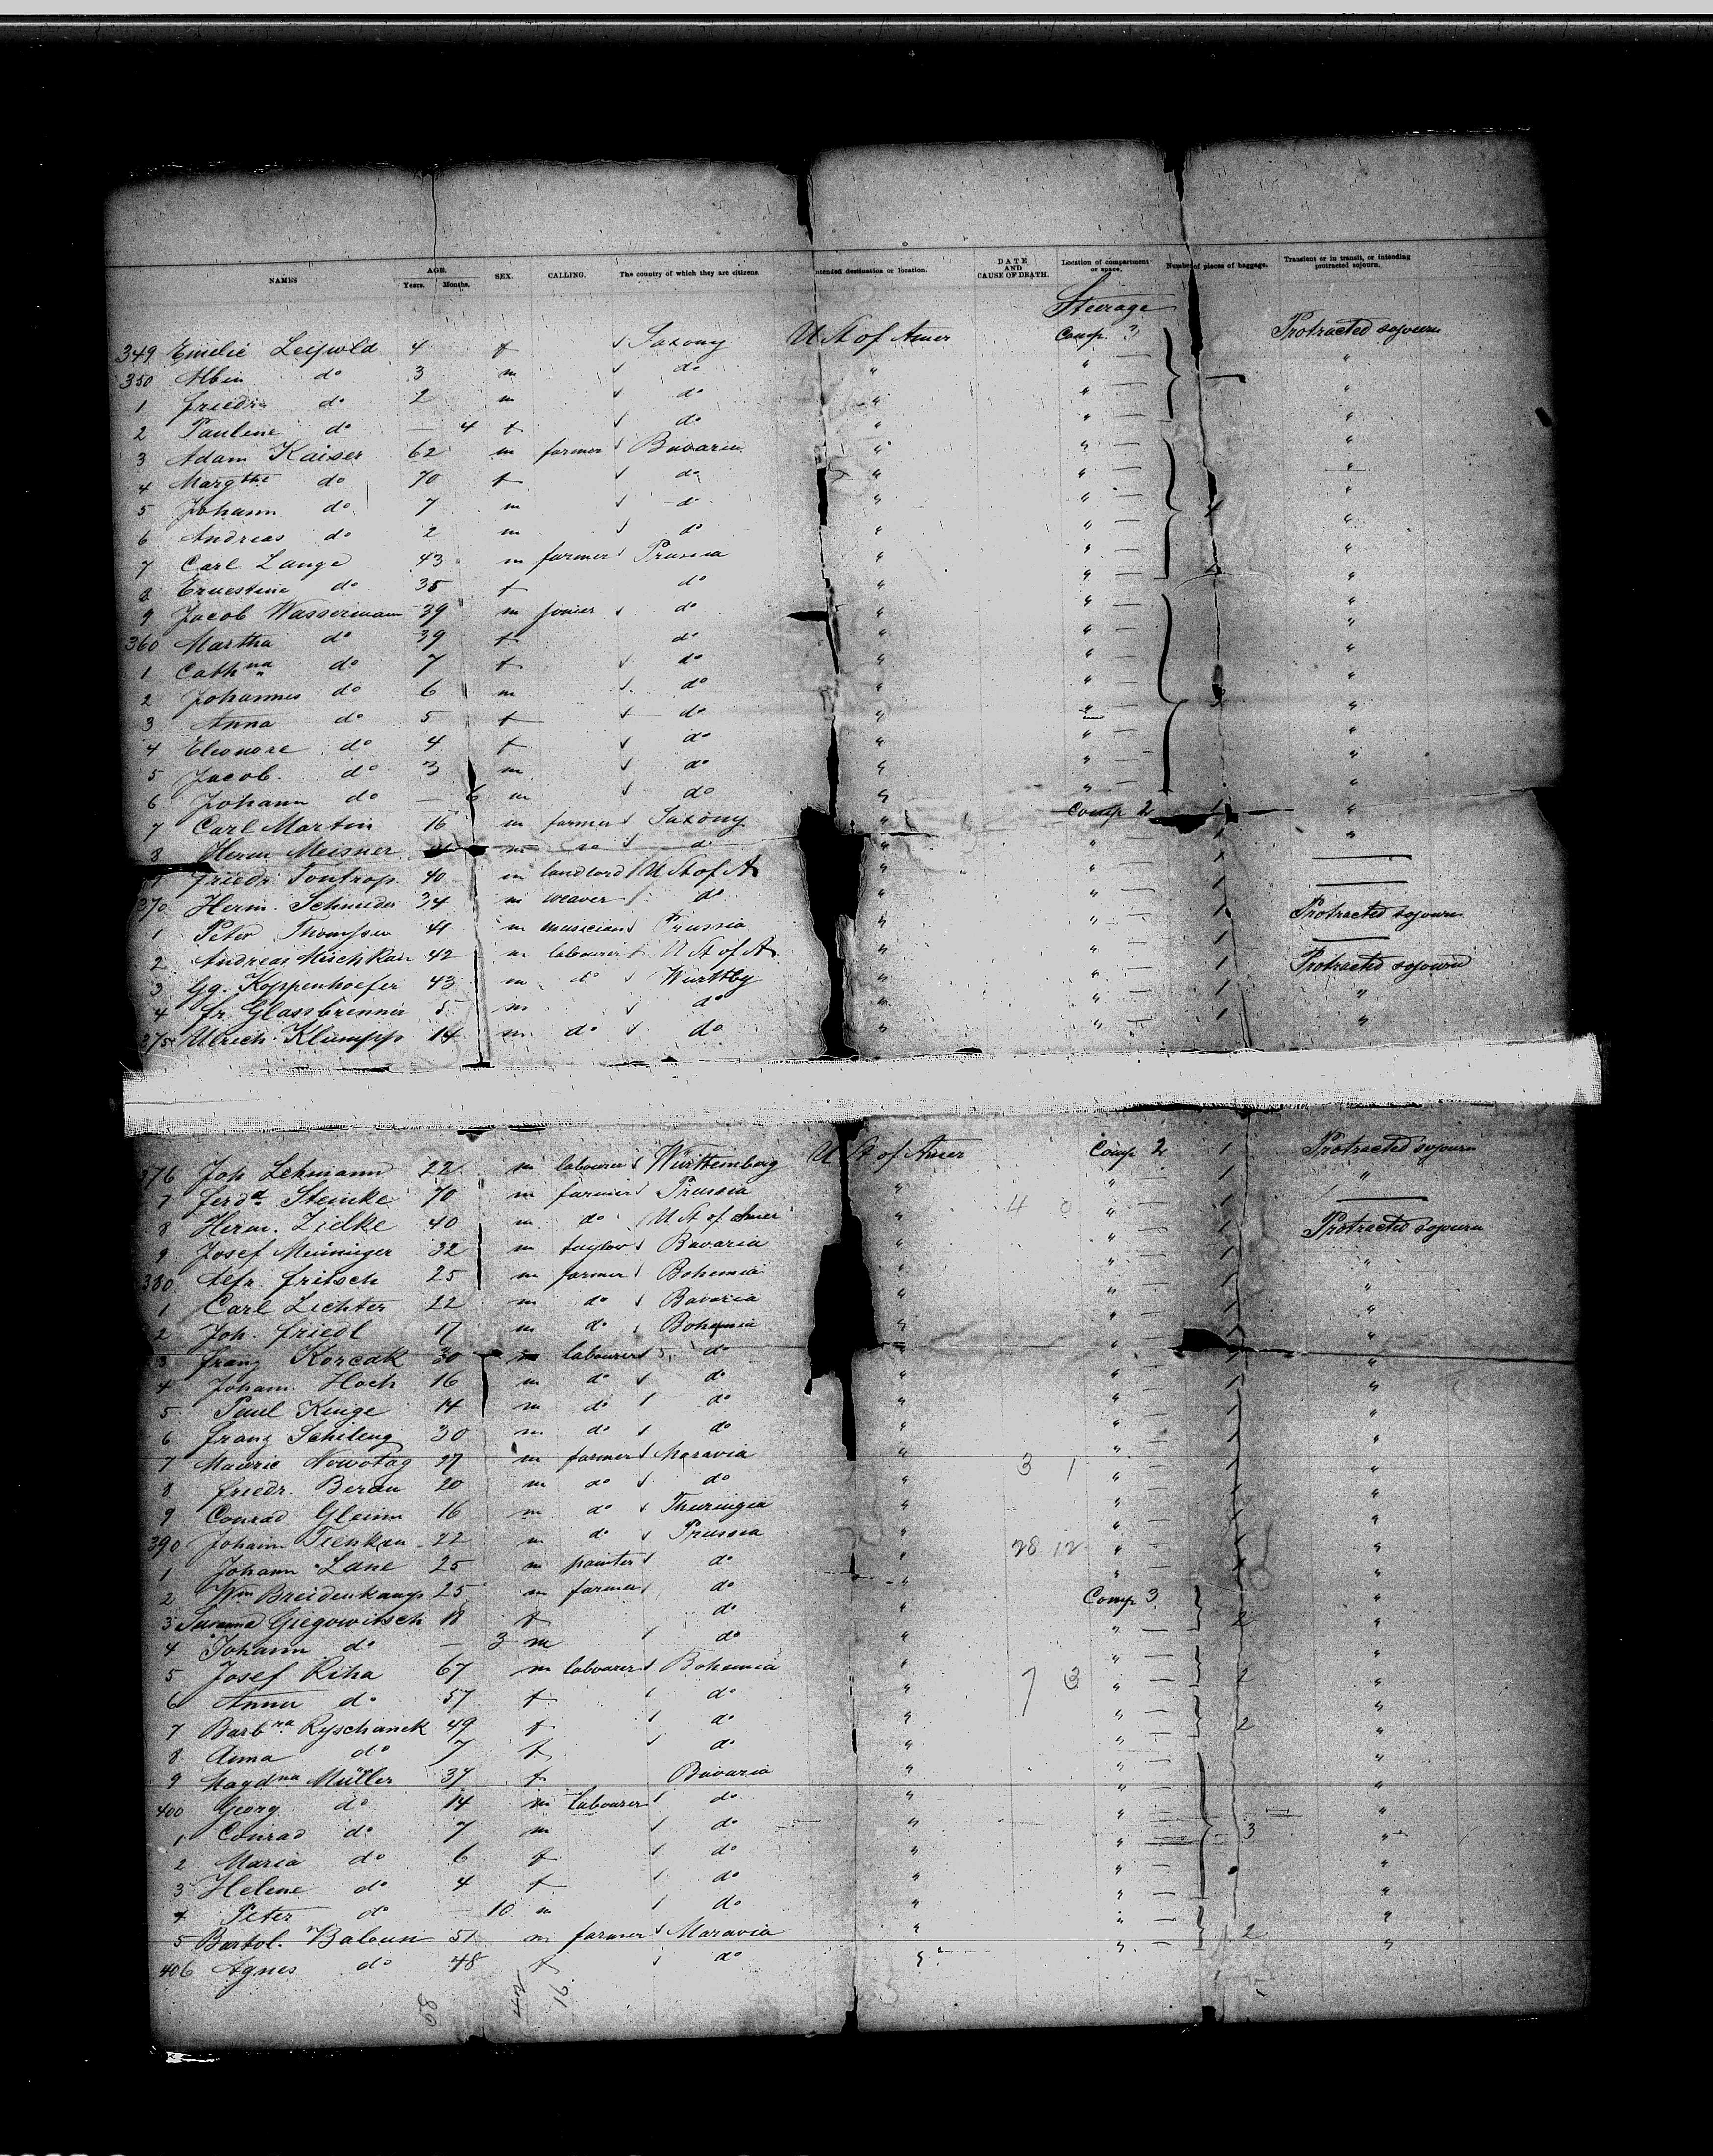 NAMES AGE. Years. Months. SEX. CALLING. The country of which they are citizens. Intended destination or location. DATE AND CAUSE OF DEATH. Location of compartment or space. Number of pieces of baggage. Transient or in transit, or intending protracted sojourn.
Steerage
349 Emilie Leipold 4 f Saxony U St of Amer Comp. 3 Protracted sojourn
350 Albin do 3 m do " " — 1 "
1 Friedr. do 2 m do " " — "
2 Pauline do — 4 f do " " — "
3 Adam Kaiser 62 m farmer Bavaria " " — "
4 Margthe do 70 f do " " — "
5 Johann do 7 m do " " — 4 "
6 Andreas do 2 m do " " — "
7 Carl Lange 43 m farmer Prussia " " — "
8 Ernestine do 35 f do " " — "
9 Jacob Wassermann 39 m joiner do " " — "
360 Martha do 39 f do " " — "
1 Cathna do 7 f do " " — "
2 Johannes do 6 m do " " — "
3 Anna do 5 f do " " — "
4 Eleonore do 4 f do " " — "
5 Jacob do 3 m do " " — "
6 Johann do — 6 m do " " — "
7 Carl Martin 16 m farmer Saxony " Comp 2 1 "
8 Herm Meisner m do do " " 1 "
Friedr. Tontrop 40 m landlord U St of A " " 1 —
370 Herm. Schneider 34 m weaver do " " 1 —
1 Peter Thomsen 41 m musician Prussia " " 1 Protracted sojourn
2 Andreas 42 m labourer U St of A " " 1 —
3 Gg. Koppenhoefer 43 m do Württbg " " 1 Protracted sojourn
4 Fr. Glassbrenner 5 m do " " 1 "
375 Ulrich Klumpp 14 m do do " " 1 "
376 Joh Lehmann 22 m labourer Württemberg U St of Amer Comp 2 1 Protracted sojourn
7 Ferdd Steinke 70 m farmer Prussia " " 1 "
8 Herm. Zielke 40 m do U St of Amer " 4 0 " 1 —
9 Josef Meininger 32 m taylor Bavaria " " 1 Protracted sojourn
380 Alfr. Fritsch 25 m farmer Bohemia " " 1 "
1 Carl Lichter 22 m do Bavaria " " 1 "
2 Joh. Friedl 17 m do Bohemia " " 1 "
3 Franz Korcak 30 m labourer do " " 1 "
4 Johann Hoch 16 m do do " " 1 "
5 Paul Kinge 14 m do do " " 1 "
6 Franz Schileny 30 m do do " " 1 "
7 Nowotny 27 m farmer Moravia " 3 1 " 1 "
8 Friedr. Beran 20 m do do " " 1 "
9 Conrad Gleim 16 m do Thuringia " " 1 "
390 Johann 22 m do Prussia " 28 12 " 1 "
1 Johann Lane 25 m painter do " " 1 "
2 Wm Breidenkamp 25 m farmer do " Comp 3 "
3 Susanna Gregowitsch 18 f do " " — 2 "
4 Johann do — 3 m do " " — "
5 Josef Riha 67 m labourer Bohemia " 7 3 " — 2 "
6 Anna do 57 f do " " — "
7 Barbra Ryschanek 49 f do " " — 2 "
8 Anna do 7 f do " " — "
9 Magdna Müller 37 f Bavaria " " — "
400 Georg do 14 m labourer do " " — "
1 Conrad do 7 m do " " — 3 "
2 Maria do 6 f do " " — "
3 Helene do 4 f do " " — "
4 Peter do — 10 m do " " — "
5 Bartol. Baloun 51 m farmer Moravia " " — 2 "
406 Agnes do 48 f do " " — "